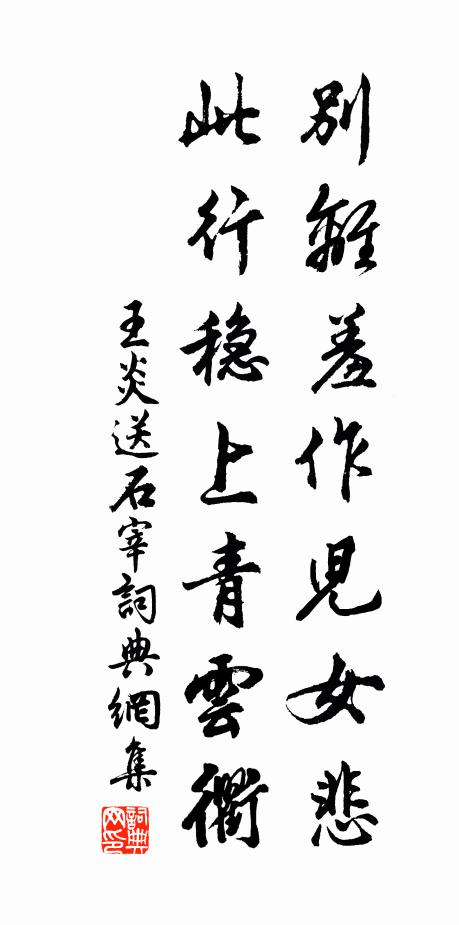 別離羞作兒女悲
此行穩上青雲衢
王炎送石宰詞典網集
詞典網印